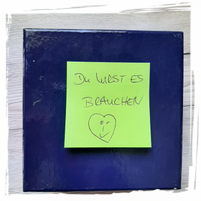 Du WIRST ES
BRAUCHEN